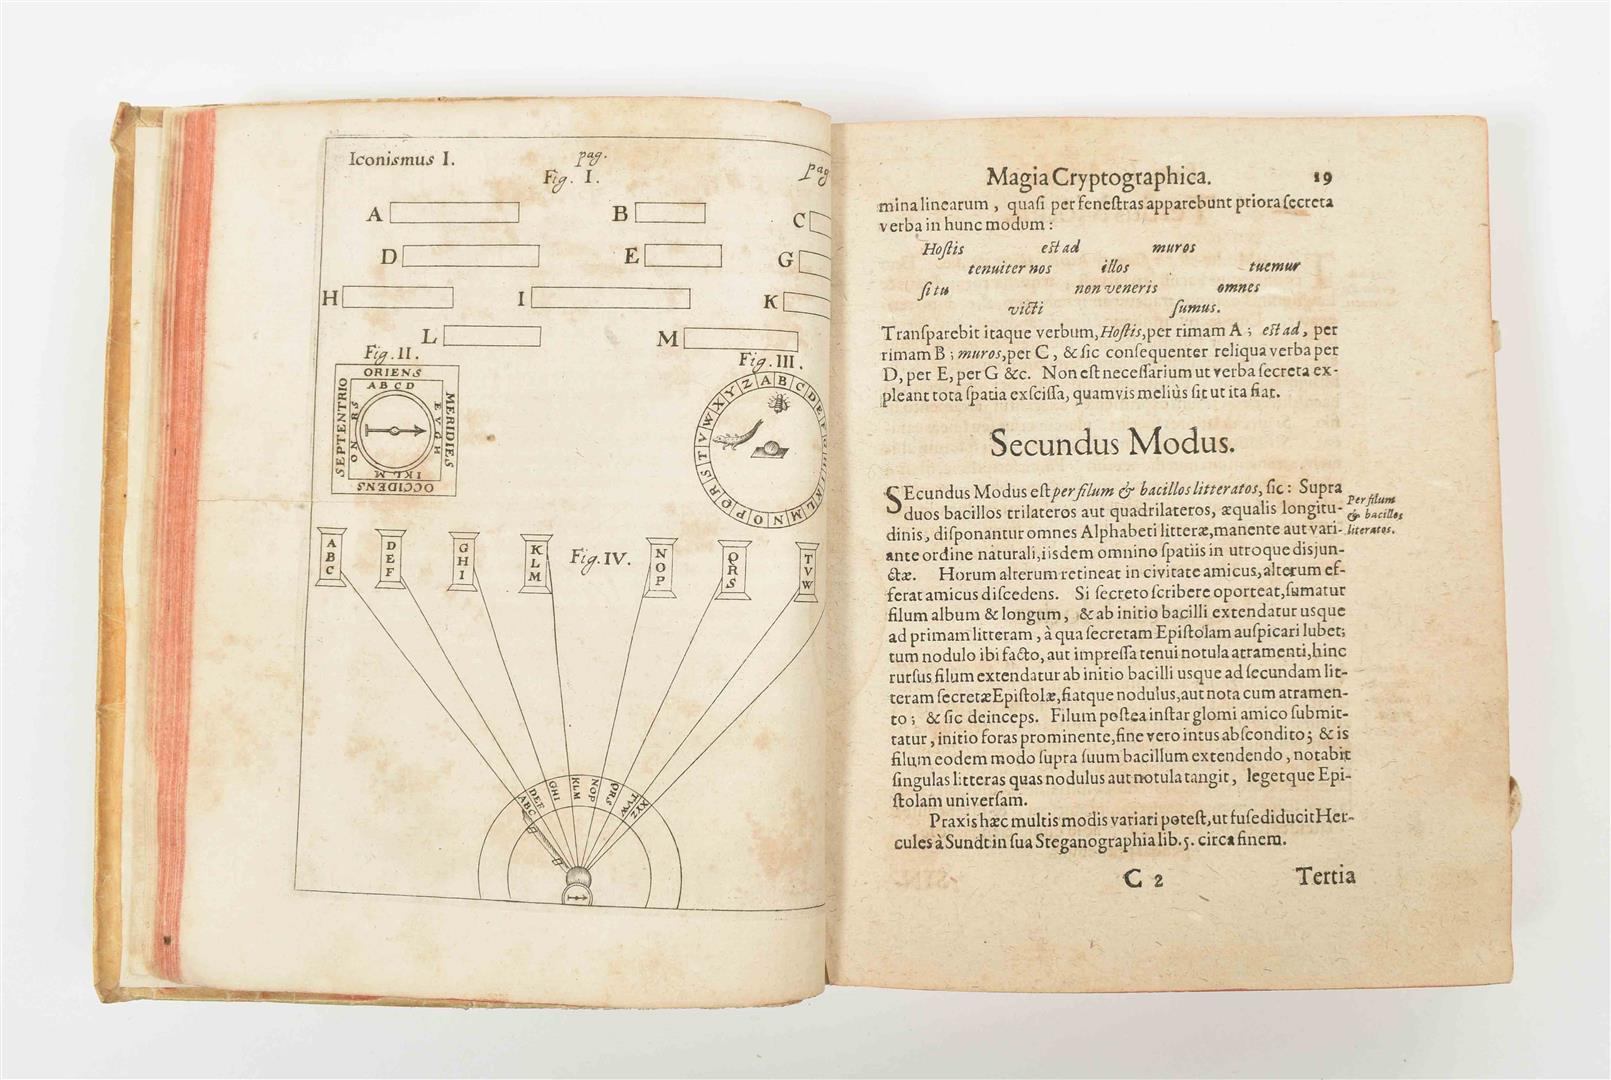 Iconismus I.
pag.
Fig. I.
pag
A
B
C
D
E
G
H
I
K
L
M
Fig. II.
Fig. III.
ORIENS
ABCD
SEPTENTRIO
MERIDIES
EVGH
IKLM
ON RS
OCCIDENS
A B C D E F
L M N O P Q R S T V W X Y Z
Fig. IV.
ABC
DEF
GHI
KLM
NOP
QRS
TVW
ABC
DEF
GHI
KLM
NOP
QRS
TVW
XYZ
Magia Cryptographica. 19
mina linearum, quasi per fenestras apparebunt priora secreta
verba in hunc modum:
Hostis est ad muros
tenuiter nos illos tuemur
situ non veneris omnes
victi sumus.
Transparebit itaque verbum, Hostis, per rimam A; est ad, per
rimam B; muros, per C, & sic consequenter reliqua verba per
D, per E, per G &c. Non est necessarium ut verba secreta ex-
pleant tota spatia exscissa, quamvis melius sit ut ita fiat.
Secundus Modus.
SEcundus Modus est per filum & bacillos litteratos, sic: Supra
duos bacillos trilateros aut quadrilateros, æqualis longitu-
dinis, disponantur omnes Alphabeti litteræ, manente aut vari-
ante ordine naturali, iisdem omnino spatiis in utroque disjun-
ctæ. Horum alterum retineat in civitate amicus, alterum ef-
ferat amicus discedens. Si secreto scribere oporteat, sumatur
filum album & longum, & ab initio bacilli extendatur usque
ad primam litteram, à qua secretam Epistolam auspicari lubet;
tum nodulo ibi facto, aut impressa tenui notula atramenti, hinc
rursus filum extendatur ab initio bacilli usque ad secundam lit-
teram secretæ Epistolæ, fiatque nodulus, aut nota cum atramen-
to; & sic deinceps. Filum postea instar glomi amico submit-
tatur, initio foras prominente, fine vero intus abscondito; & is
filum eodem modo supra suum bacillum extendendo, notabit
singulas litteras quas nodulus aut notula tangit, legetque Epi-
stolam universam.
Praxis hæc multis modis variari potest, ut fuse diducit Her-
cules à Sundt in sua Steganographia lib. 5. circa finem.
C 2 Tertia
Per filum
& bacillos
literatos.